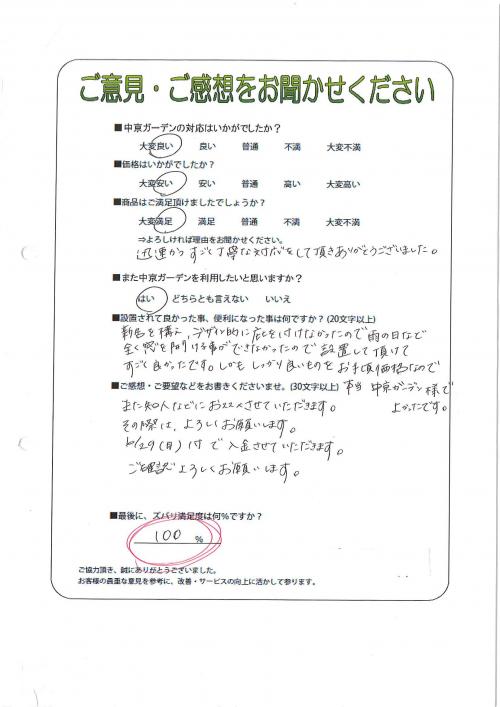 ご意見・ご感想をお聞かせください
■中京ガーデンの対応はいかがでしたか？
大変良い 良い 普通 不満 大変不満
■価格はいかがでしたか？
大変安い 安い 普通 高い 大変高い
■商品はご満足頂けましたでしょうか？
大変満足 満足 普通 不満 大変不満
⇒よろしければ理由をお聞かせください。
迅速かつすごく丁寧な対応をして頂きありがとうございました。
■また中京ガーデンを利用したいと思いますか？
はい どちらとも言えない いいえ
■設置されて良かった事、便利になった事は何ですか？(20文字以上)
新居を構え、デザイン的に庇を付けなかったので雨の日など
全く窓を開ける事ができなかったので設置して頂けて
すごく良かったです。しかもしっかり良いものをお手頃価格なので
■ご感想・ご要望などをお書きくださいませ。(30文字以上) 本当 中京ガーデン様で
また知人などにおススメさせていただきます。 よかったです。
その際は、よろしくお願いします。
10/29(日)付で入金させていただきます。
ご確認よろしくお願いします。
■最後に、ズバリ満足度は何％ですか？
100 ％
ご協力頂き、誠にありがとうございました。
お客様の貴重な意見を参考に、改善・サービスの向上に活かして参ります。